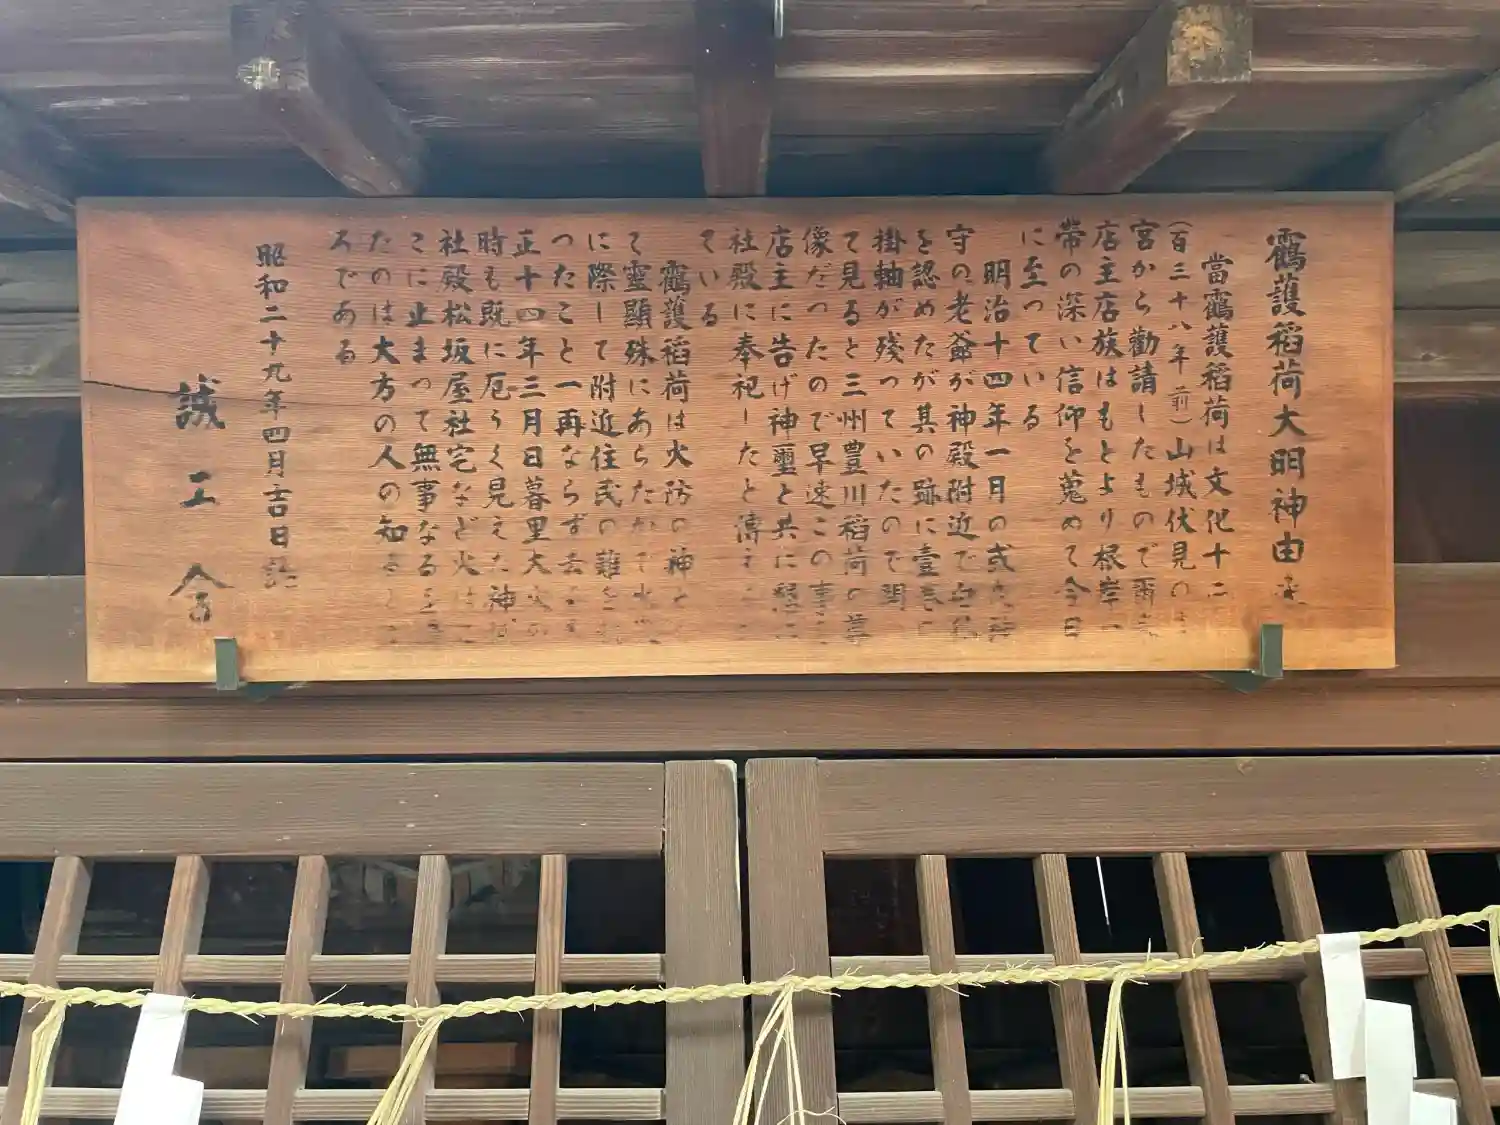 靏護稲荷大明神由来
當靏護稲荷は文化十二
(百三十八年前)山城伏見の
宮から勧請したもので爾来
店主店族はもとより根岸一
帯の深い信仰を蒐めて今日
に至っている
明治十四年一月の或夜神
守の老爺が神殿附近で白狐
を認めたが其の跡に壹巻の
掛軸が残っていたので開い
て見ると三州豊川稲荷の尊
像だったので早速この事を
店主に告げ神璽と共に懇に
社殿に奉祀したと傳えられ
ている
靏護稲荷は火防の神とし
て靈顯殊にあらたかで水災
に際して附近住民の難を
ったこと一再ならず去る大
正十四年三月日暮里大火の
時も既に厄うく見えた神
社殿松坂屋社宅など火は
こに止まって無事なるを得
たのは大方の人の知るとこ
ろである
昭和二十九年四月吉日誌
誠工舎